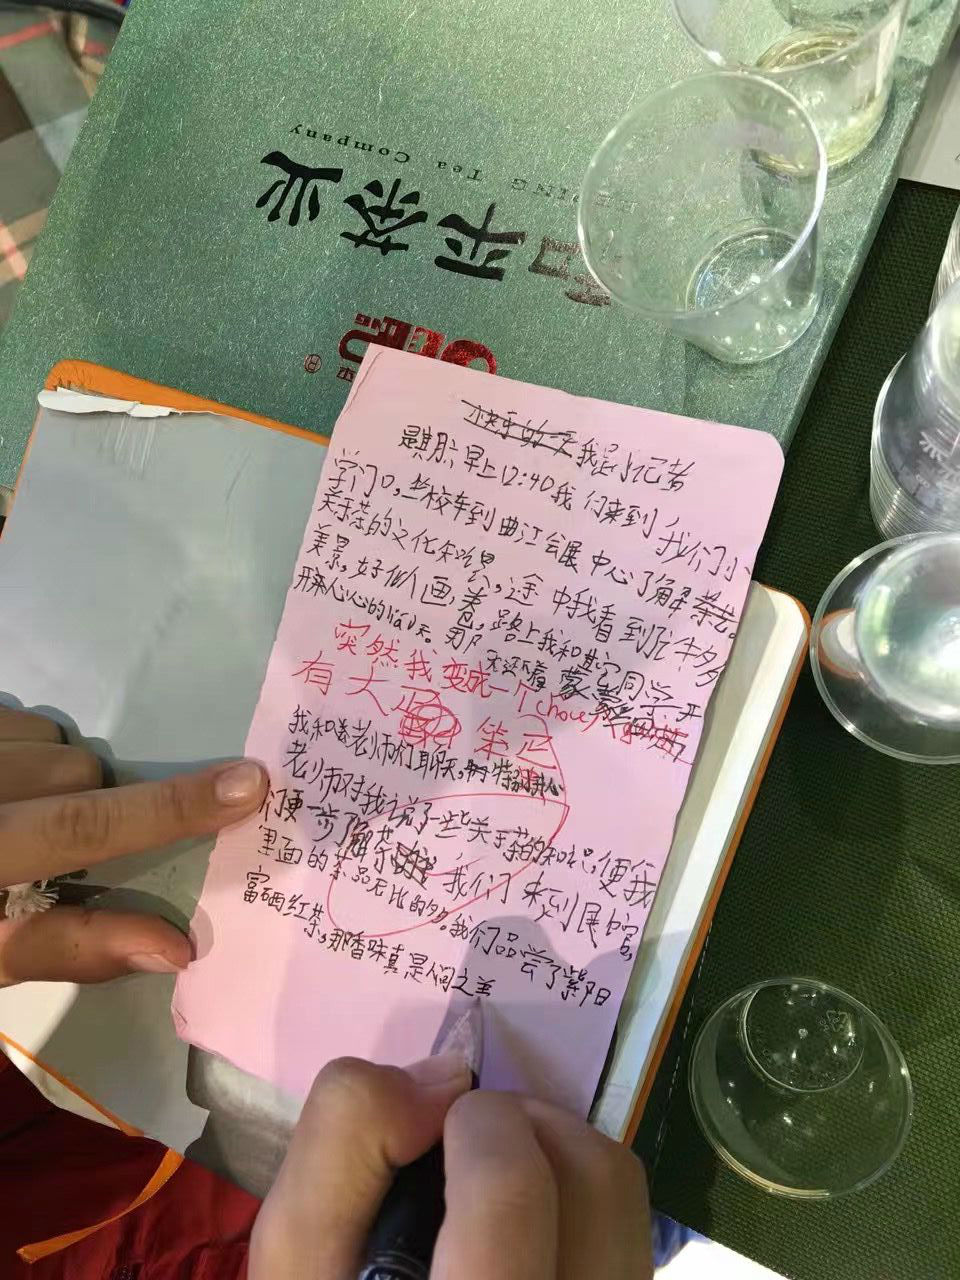 和平茶业
HEPING Tea Company
®
快乐的一天 我是小记者
星期六早上12:40我们来到我们小
学门口,坐校车到曲江会展中心了解茶艺。
关于茶的文化知识,途中我看到许多
美景,好似画卷,路上我和其它同学
开开心心的聊天。
突然我变成一个
有大
我和老师们聊天,
老师对我说了一些关于茶的知识,便我
们更一步了解茶 我们来到展馆,
里面的茶品无比的多。我们品尝了紫阳
富硒红茶,那香味真是人间之美